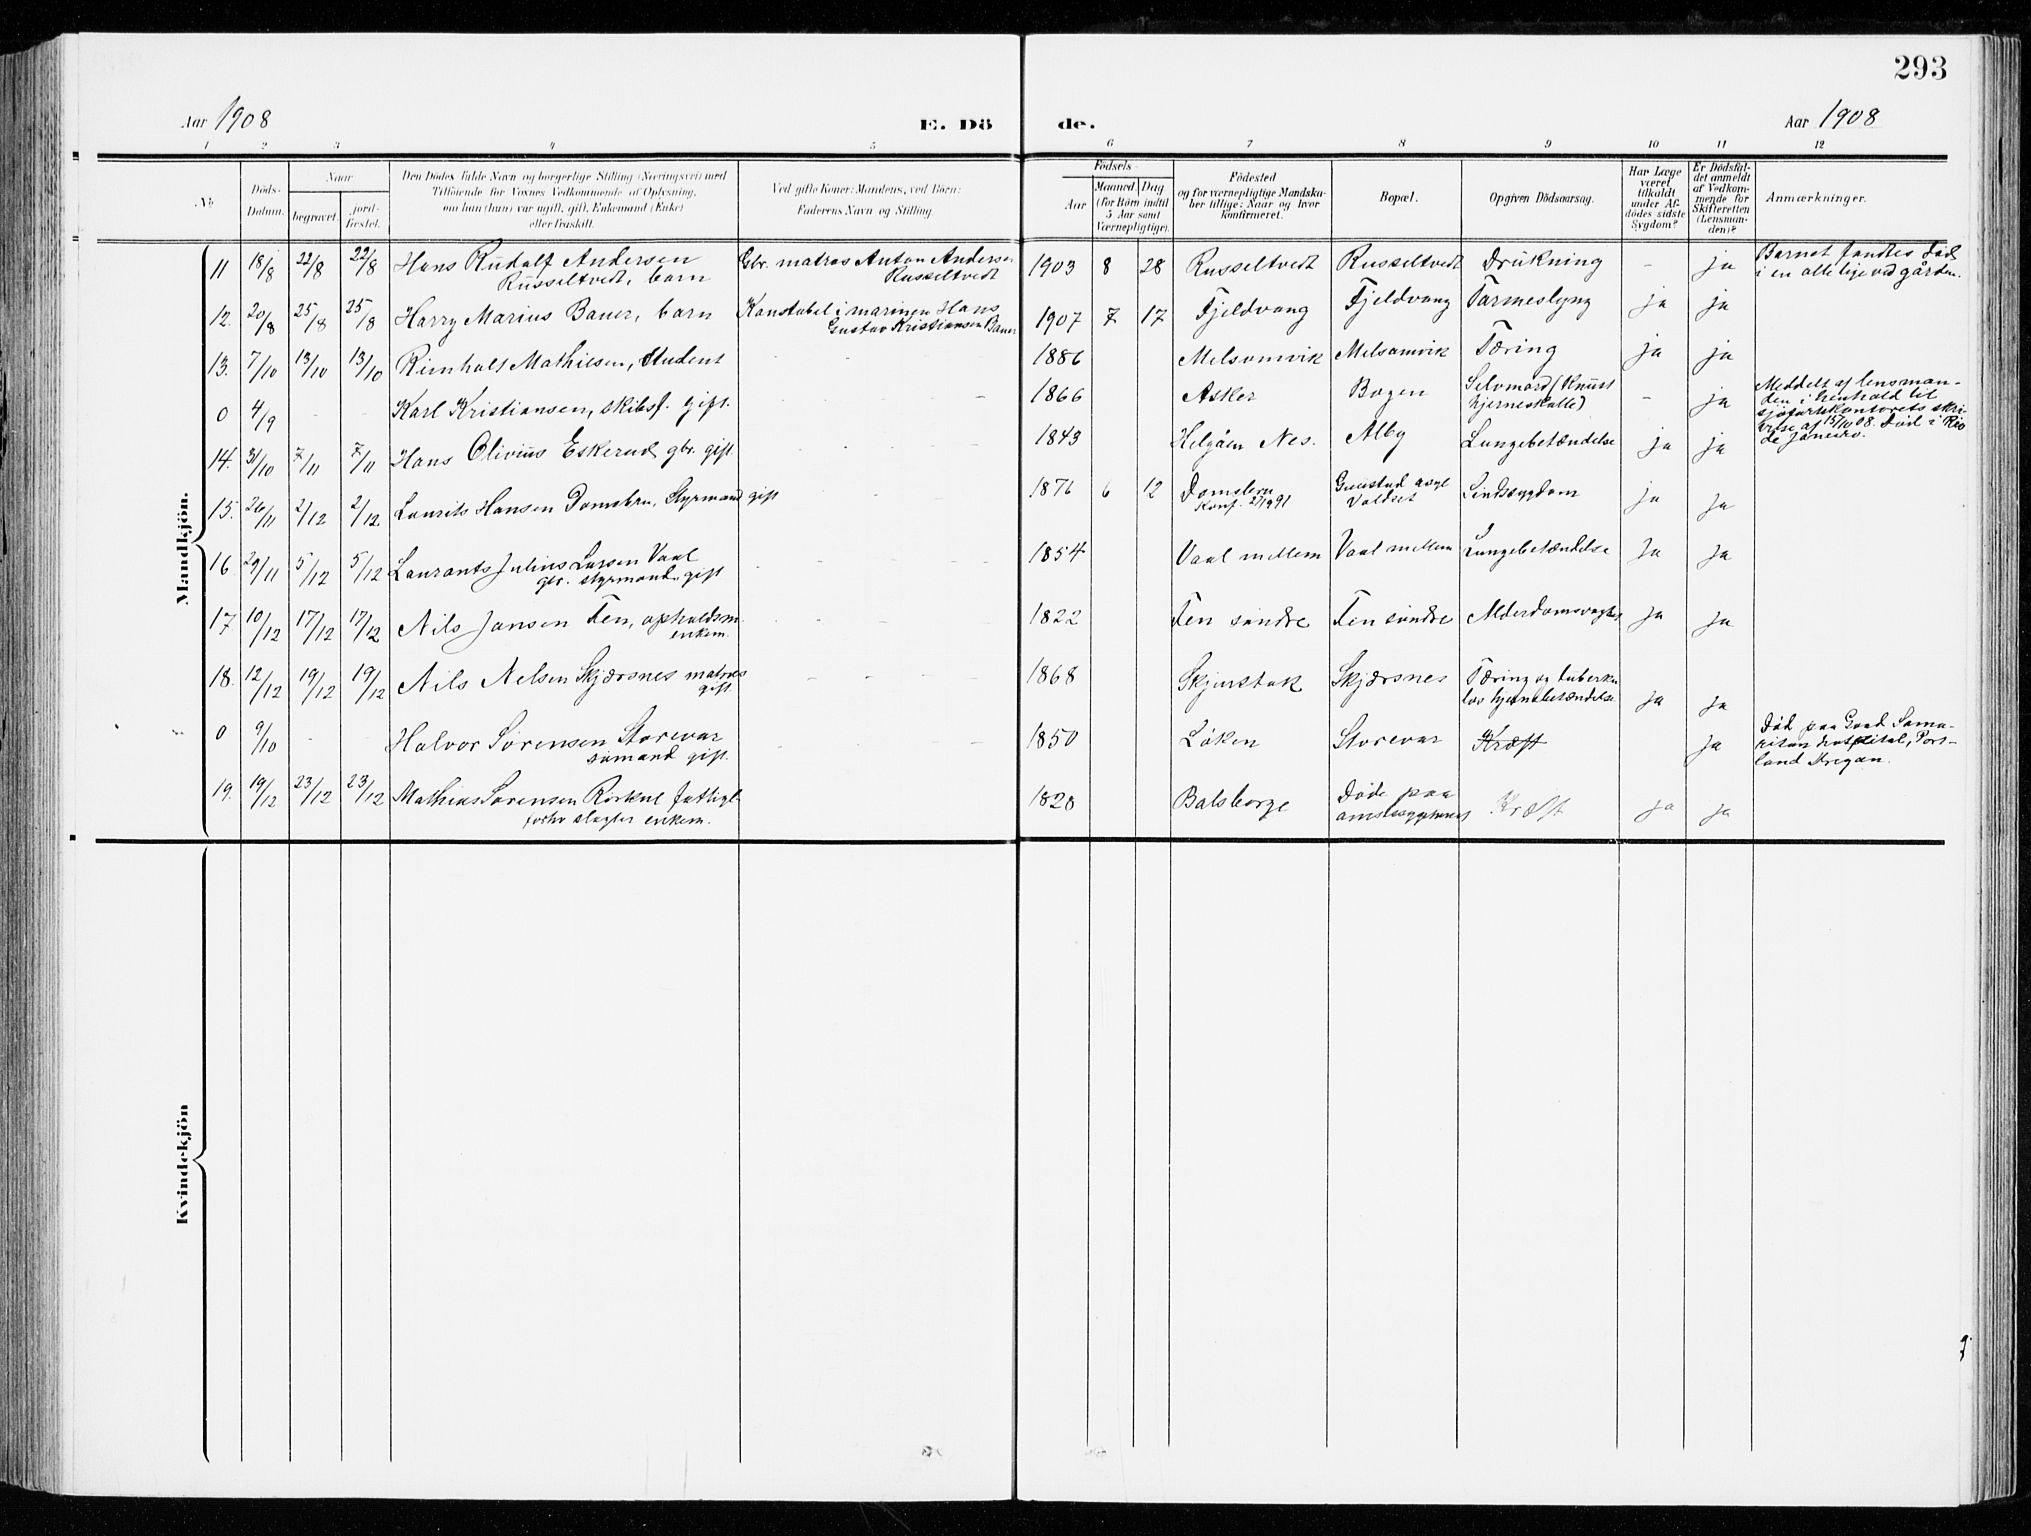 293
Aar 1908
E. Dö de.
Aar 1908
1 2 3 4 5 6 7 8 9 10 11 12
No
Döds-Datum.
Naar
begravet.
jord-fæstet.
Den Dödes fulde Navn og borgerlige Stilling (Næringsvei) med
Tilföiende for Voxnes Vedkommende af Oplysning,
om han (hun) var ugift, gift, Enkemand (Enke)
eller fraskilt.
Ved gifte Koner: Mandens, ved Börn:
Faderens Navn og Stilling.
Födsels-
Aar
Maaned. Dag
(for Börn indtil
5 Aar samt
Værnepligtige).
Födested
og for værnepligtige Mandska-
ber tillige: Naar og hvor
konfirmeret.
Bopæl.
Opgiven Dödsaarsag.
Har Læge
været
tilkaldt
under Af-
dödes sidste
Sygdom?
Er Dödsfal-
det anmeldt
af Vedkom-
mende for
Skifteretten
(Lensman-
den)?
Anmærkninger.
Mandkjön.
11 18/8 22/8 22/8 Hans Rudolf Andersen Russeltvedt, barn Gbr. matros Anton Andersen Russeltvedt 1903 8 28 Russeltvedt Russeltvedt Drukning - ja Barnet fandtes död i en ved gården.
12. 20/8 25/8 25/8 Harry Marius Bauer, barn Konstabel i marinen Hans Gustav Kristiansen Bauer 1907 7 17 Fjeldvang Fjeldvang Tarmeslyng ja ja
13. 7/10 13/10 13/10 Reinholt Mathiesen, Student 1886 Melsomvik Melsomvik Tæring ja ja
0 4/9 - - Karl Kristiansen, skibsf. gift. 1866 Asker Bogen Selvmord (Knust hjerneskalle) - ja Meddelt af lensman-
den i henhold til
sjöfartskontorets skri-
velse af 15/10 08. Död i Rio
de Janeiro.
14. 31/10 7/11 7/11 Hans Olivius Eskerud gbr. gift. 1843 Helgåen Nes. Alby Lungebetændelse ja ja
15. 26/11 2/12 2/12 Laurits Hansen Domsbru, Styrmand gift 1871 6 12 Domsbru Konf. Gaustad asyl Sindssygdom ja ja
16. 29/11 5/12 5/12 Laurants Julius Larsen Vaal gbr. styrmand. gift 1854 Vaal mellem Vaal mellem Lungebetændelse ja ja
17 10/12 17/12 17/12 Nils Jansen Fen, opholdsm. enkem. 1822 Fen söndre Fen söndre ja ja
18. 12/12 19/12 19/12 Nils Nelsen Skjærsnes matros gift. 1868 Skjærsnes Tæring og tuberku
los hjernebetændelse ja ja
0 9/10 - - Halvor Sörensen Storevar sömand gift. 1850 Löken Storevar Kræft ja Död paa Good Sama-
ritan hospital, Port-
land Oregan.
19. 19/12 23/12 23/12 Mathias Sörensen Rörkul fattigl. forhv slagter enkem. 1820 Balsberge Döde paa amtssygehuset Kræft ja ja
Kvindekjön